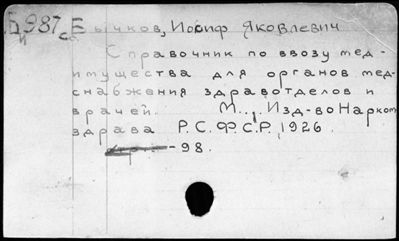 Б987с Бычков, Иосиф Яковлевич
и
Справочник по ввозу мед-
имущества для органов мед-
снабжения здравотделов и
врачей. М., Изд-во Нарком
здрава Р.С.Ф.С.Р, 1926.
-98.